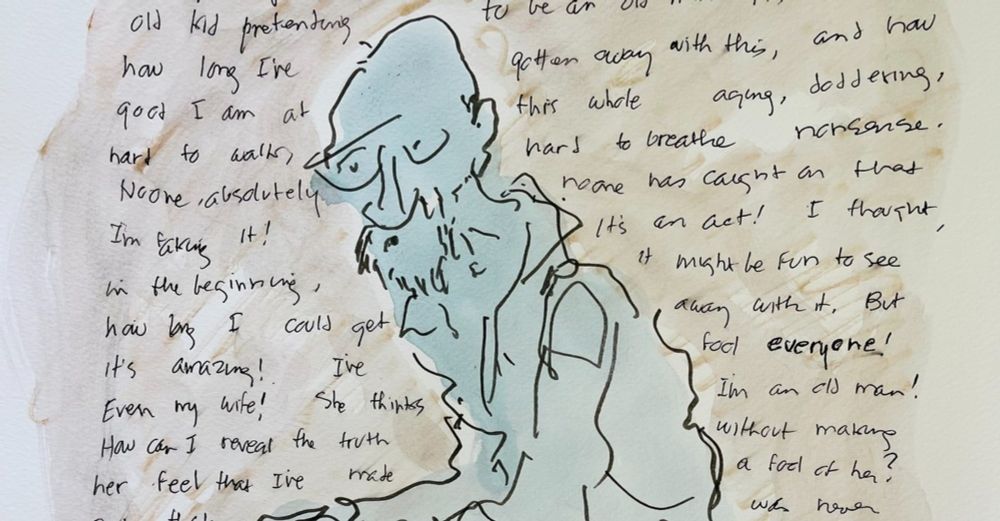 old kid pretending to be an old
how long I've gotten away with this, and how
good I am at this whole aging, doddering,
hard to walk, hard to breathe nonsense.
Noone, absolutely noone has caught on that
I'm faking it! It's an act! I thought,
in the beginning, it might be fun to see
how long I could get away with it. But
it's amazing! I've fool everyone!
Even my wife! She thinks I'm an old man!
How can I reveal the truth without making
her feel that I've made a fool of her?
was never